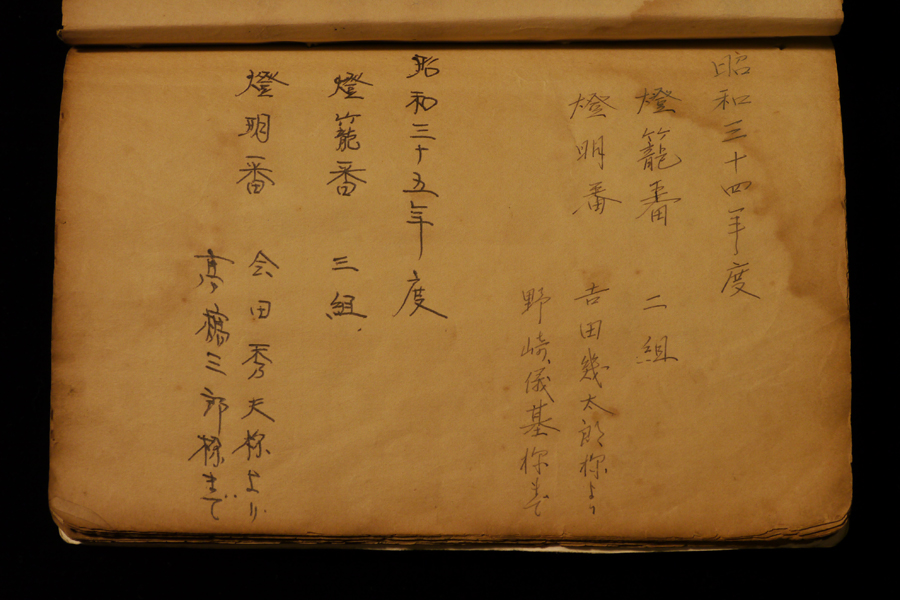 昭和三十四年度
燈籠番 二組
燈明番 吉田幾太郎様より
野崎儀基様まで
昭和三十五年度
燈籠番 三組
燈明番 会田秀夫様より
高橋三郎様まで